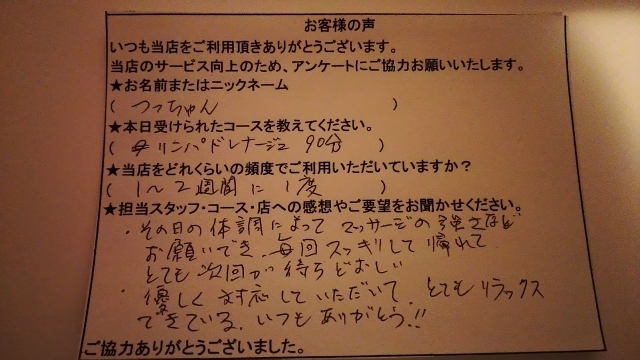 お客様の声
いつも当店をご利用頂きありがとうございます。
当店のサービス向上のため、アンケートにご協力お願いいたします。
★お名前またはニックネーム
( つっちゃん )
★本日受けられたコースを教えてください。
( リンパドレナージュ 90分 )
★当店をどれくらいの頻度でご利用いただいていますか?
( 1〜2週間に1度 )
★担当スタッフ・コース・店への感想やご要望をお聞かせください。
・その日の体調によって マッサージの強さなど
お願いでき、毎回スッキリして帰れて
とても次回が待ちどおしい
・優しく対応していただいて、とてもリラックス
できている。いつもありがとう!!
ご協力ありがとうございました。